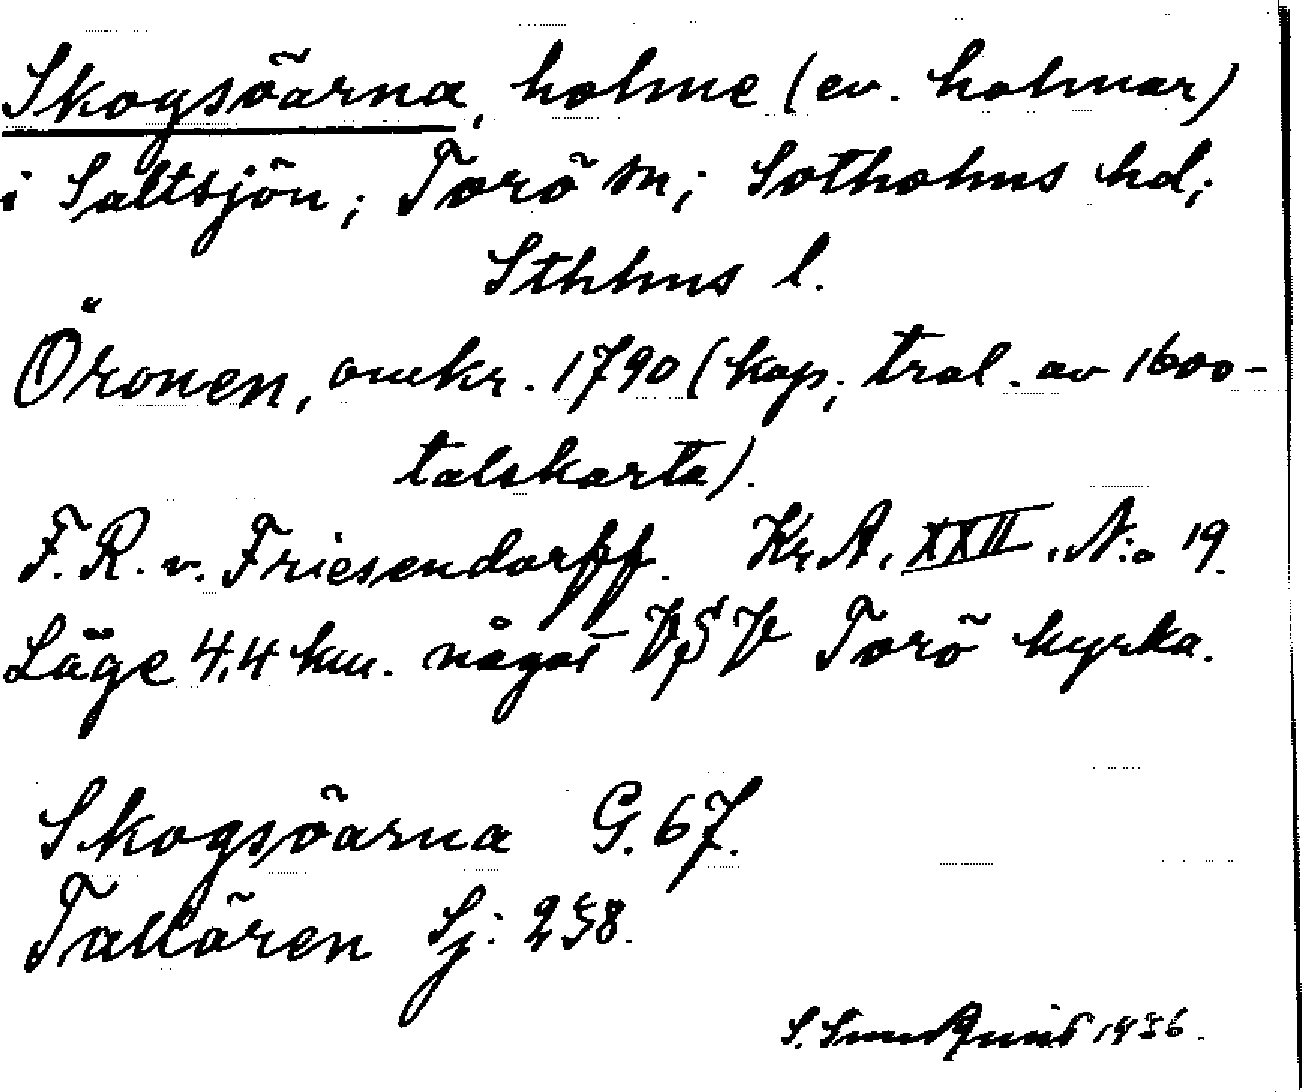 Skogsöarna, holme (ev. holmar)
i Saltsjön; Torö sn; Sotholms hd;
Sthlms l.
Öronen, omkr. 1790 (kop. trol. av 1600-
talskarta).
F.R. v. Friesendorff. Kr.A. XXII. N:o 19.
Läge 4,4 km. något VSV Torö kyrka.
Skogsöarna G. 67.
Tallören Sj: 238.
S. Sundquist 1936.